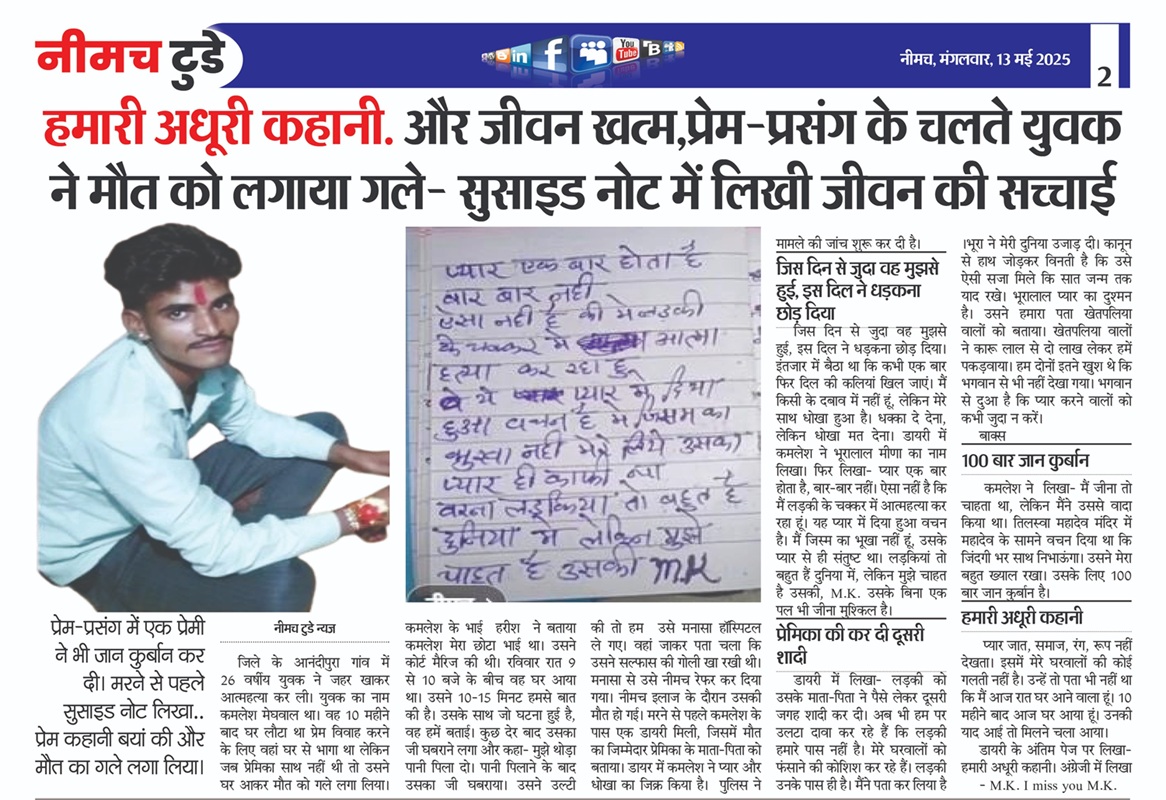 नीमच टुडे
in
f
You
Tube
B
नीमच, मंगलवार, 13 मई 2025
2
हमारी अधूरी कहानी. और जीवन खत्म,प्रेम-प्रसंग के चलते युवक
ने मौत को लगाया गले- सुसाइड नोट में लिखी जीवन की सच्चाई
प्यार एक बार होता है
बार बार नही
ऐसा नही है की मे लड़की
के चक्कर मे आत्मा
हत्या कर रहा हु
ये प्यार मे दिया
हुआ वचन है मे जिसम का
भुखा नही मेरे लिये उसका
प्यार ही काफी था
वरना लड़किया तो बहुत है
दुनिया मे लेकिन मुझे
चाहत है उसकी M.K
प्रेम-प्रसंग में एक प्रेमी
ने भी जान कुर्बान कर
दी। मरने से पहले
सुसाइड नोट लिखा..
प्रेम कहानी बयां की और
मौत का गले लगा लिया।
नीमच टुडे न्यूज
जिले के आनंदीपुरा गांव में
26 वर्षीय युवक ने जहर खाकर
आत्महत्या कर ली। युवक का नाम
कमलेश मेघवाल था। वह 10 महीने
बाद घर लौटा था प्रेम विवाह करने
के लिए वहां घर से भागा था लेकिन
जब प्रेमिका साथ नहीं थी तो उसने
घर आकर मौत को गले लगा लिया।
कमलेश के भाई हरीश ने बताया
कमलेश मेरा छोटा भाई था। उसने
कोर्ट मैरिज की थी। रविवार रात 9
से 10 बजे के बीच वह घर आया
था। उसने 10-15 मिनट हमसे बात
की है। उसके साथ जो घटना हुई है,
वह हमें बताई। कुछ देर बाद उसका
जी घबराने लगा और कहा- मुझे थोड़ा
पानी पिला दो। पानी पिलाने के बाद
उसका जी घबराया। उसने उल्टी
की तो हम उसे मनासा हॉस्पिटल
ले गए। वहां जाकर पता चला कि
उसने सल्फास की गोली खा रखी थी।
मनासा से उसे नीमच रेफर कर दिया
गया। नीमच इलाज के दौरान उसकी
मौत हो गई। मरने से पहले कमलेश के
पास एक डायरी मिली, जिसमें मौत
का जिम्मेदार प्रेमिका के माता-पिता को
बताया। डायर में कमलेश ने प्यार और
धोखा का जिक्र किया है। पुलिस ने
मामले की जांच शुरू कर दी है।
जिस दिन से जुदा वह मुझसे
हुई, इस दिल ने धड़कना
छोड़ दिया
जिस दिन से जुदा वह मुझसे
हुई, इस दिल ने धड़कना छोड़ दिया।
इंतजार में बैठा था कि कभी एक बार
फिर दिल की कलियां खिल जाएं। मैं
किसी के दबाव में नहीं हूं, लेकिन मेरे
साथ धोखा हुआ है। धक्का दे देना,
लेकिन धोखा मत देना। डायरी में
कमलेश ने भूरालाल मीणा का नाम
लिखा। फिर लिखा- प्यार एक बार
होता है, बार-बार नहीं। ऐसा नहीं है कि
मैं लड़की के चक्कर में आत्महत्या कर
रहा हूं। यह प्यार में दिया हुआ वचन
है। मैं जिस्म का भूखा नहीं हूं, उसके
प्यार से ही संतुष्ट था। लड़कियां तो
बहुत हैं दुनिया में, लेकिन मुझे चाहत
है उसकी, M.K. उसके बिना एक
पल भी जीना मुश्किल है।
प्रेमिका की कर दी दूसरी
शादी
डायरी में लिखा- लड़की को
उसके माता-पिता ने पैसे लेकर दूसरी
जगह शादी कर दी। अब भी हम पर
उलटा दावा कर रहे हैं कि लड़की
हमारे पास नहीं है। मेरे घरवालों को
फंसाने की कोशिश कर रहे हैं। लड़की
उनके पास ही है। मैंने पता कर लिया है
।भूरा ने मेरी दुनिया उजाड़ दी। कानून
से हाथ जोड़कर विनती है कि उसे
ऐसी सजा मिले कि सात जन्म तक
याद रखे। भूरालाल प्यार का दुश्मन
है। उसने हमारा पता खेतपलिया
वालों को बताया। खेतपलिया वालों
ने कारू लाल से दो लाख लेकर हमें
पकड़वाया। हम दोनों इतने खुश थे कि
भगवान से भी नहीं देखा गया। भगवान
से दुआ है कि प्यार करने वालों को
कभी जुदा न करें।
बाक्स
100 बार जान कुर्बान
कमलेश ने लिखा- मैं जीना तो
चाहता था, लेकिन मैंने उससे वादा
किया था। तिलस्वा महादेव मंदिर में
महादेव के सामने वचन दिया था कि
जिंदगी भर साथ निभाऊंगा। उसने मेरा
बहुत ख्याल रखा। उसके लिए 100
बार जान कुर्बान है।
हमारी अधूरी कहानी
प्यार जात, समाज, रंग, रूप नहीं
देखता। इसमें मेरे घरवालों की कोई
गलती नहीं है। उन्हें तो पता भी नहीं था
कि मैं आज रात घर आने वाला हूं। 10
महीने बाद आज घर आया हूं। उनकी
याद आई तो मिलने चला आया।
डायरी के अंतिम पेज पर लिखा-
हमारी अधूरी कहानी। अंग्रेजी में लिखा
- M.K. I miss you M.K.